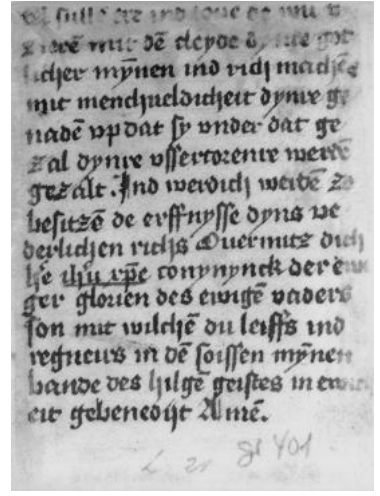 zierē mit dē cleyde dynre got
licher mȳnen ind rich machē
mit menchueldicheit dynre ge
nadē vp dat sy vnder dat ge
zal dynre vssercorenre werdē
gezalt. Ind werdich werdē zo
besitzē de erffnysse dyns ve
derlichen richs Ouermitz dich
he ihu xpe conynynck der ewi
ger glorien des ewigē vaders
son mit wilchē du leiffs ind
regneirs in dē soissen mȳnen
bande des hilgē geistes in ewi
eit gebenedijt Amē.
401